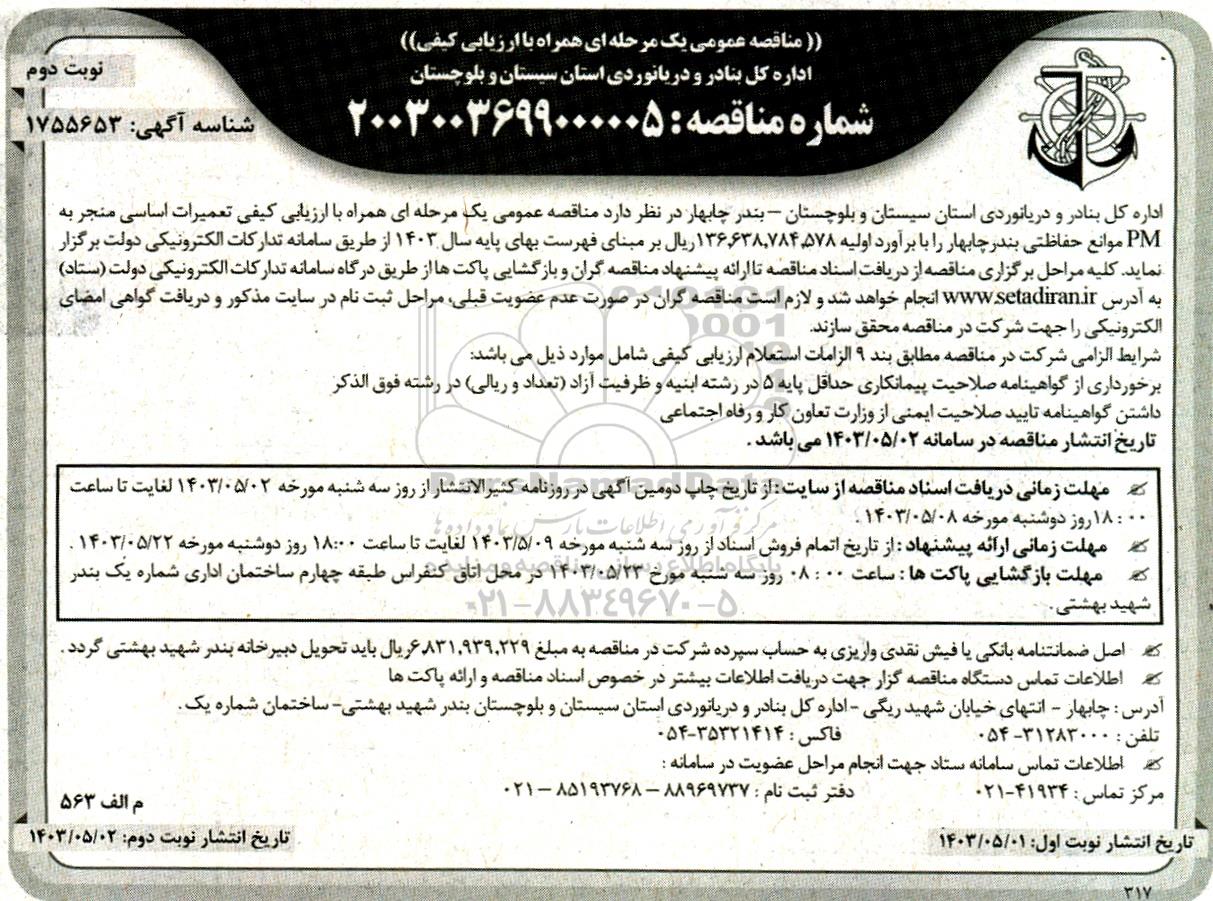 (( مناقصه عمومی یک مرحله ای همراه با ارزیابی کیفی))
اداره کل بنادر و دریانوردی استان سیستان و بلوچستان
شماره مناقصه: ۲۰۰۳۰۰۳۶۹۹۰۰۰۰۰۵
نوبت دوم
شناسه آگهی: ۱۷۵۵۶۵۳
اداره کل بنادر و دریانوردی استان سیستان و بلوچستان – بندر چابهار در نظر دارد مناقصه عمومی یک مرحله ای همراه با ارزیابی کیفی تعمیرات اساسی منجر به
PM موانع حفاظتی بندرچابهار را با برآورد اولیه ۱۳۶,۶۳۸,۷۸۴,۵۷۸ریال بر مبنای فهرست بهای پایه سال ۱۴۰۳ از طریق سامانه تدارکات الکترونیکی دولت برگزار
نماید. کلیه مراحل برگزاری مناقصه از دریافت اسناد مناقصه تا ارائه پیشنهاد مناقصه گران و بازگشایی پاکت ها از طریق درگاه سامانه تدارکات الکترونیکی دولت (ستاد)
به آدرس www.setadiran.ir انجام خواهد شد و لازم است مناقصه گران در صورت عدم عضویت قبلی، مراحل ثبت نام در سایت مذکور و دریافت گواهی امضای
الکترونیکی را جهت شرکت در مناقصه محقق سازند.
شرایط الزامی شرکت در مناقصه مطابق بند ۹ الزامات استعلام ارزیابی کیفی شامل موارد ذیل می باشد:
برخورداری از گواهینامه صلاحیت پیمانکاری حداقل پایه ۵ در رشته ابنیه و ظرفیت آزاد (تعداد و ریالی) در رشته فوق الذکر
داشتن گواهینامه تایید صلاحیت ایمنی از وزارت تعاون کار و رفاه اجتماعی
تاریخ انتشار مناقصه در سامانه ۱۴۰۳/۰۵/۰۲ می باشد .
مهلت زمانی دریافت اسناد مناقصه از سایت: از تاریخ چاپ دومین آگهی در روزنامه کثیرالانتشار از روز سه شنبه مورخه ۱۴۰۳/۰۵/۰۲ لغایت تا ساعت
۱۸:۰۰ روز دوشنبه مورخه ۱۴۰۳/۰۵/۰۸ .
مهلت زمانی ارائه پیشنهاد : از تاریخ اتمام فروش اسناد از روز سه شنبه مورخه ۱۴۰۳/۵/۰۹ لغایت تا ساعت ۱۸:۰۰ روز دوشنبه مورخه ۱۴۰۳/۰۵/۲۲ .
مهلت بازگشایی پاکت ها : ساعت ۰۸:۰۰ روز سه شنبه مورخ ۱۴۰۳/۰۵/۲۳ در محل اتاق کنفراس طبقه چهارم ساختمان اداری شماره یک بندر
شهید بهشتی .
ParsNamadData
مرکز فرآوری اطلاعات پارس نماد داده ها
پایگاه اطلاع رسانی مناقصه و مزایده
۰۲۱-۸۸۳۴۹۶۷۰-۵
اصل ضمانتنامه بانکی یا فیش نقدی واریزی به حساب سپرده شرکت در مناقصه به مبلغ ۶,۸۳۱,۹۳۹,۲۲۹ریال باید تحویل دبیرخانه بندر شهید بهشتی گردد .
اطلاعات تماس دستگاه مناقصه گزار جهت دریافت اطلاعات بیشتر در خصوص اسناد مناقصه و ارائه پاکت ها
آدرس : چابهار - انتهای خیابان شهید ریگی - اداره کل بنادر و دریانوردی استان سیستان و بلوچستان بندر شهید بهشتی- ساختمان شماره یک .
تلفن : ۳۱۲۸۳۰۰۰-۰۵۴ فاکس : ۳۵۳۲۱۴۱۴-۰۵۴
اطلاعات تماس سامانه ستاد جهت انجام مراحل عضویت در سامانه :
مرکز تماس : ۴۱۹۳۴-۰۲۱ دفتر ثبت نام : ۸۸۹۶۹۷۳۷ – ۸۵۱۹۳۷۶۸ – ۰۲۱
م الف ۵۶۳
تاریخ انتشار نوبت اول: ۱۴۰۳/۰۵/۰۱ تاریخ انتشار نوبت دوم: ۱۴۰۳/۰۵/۰۲
۳۱۷